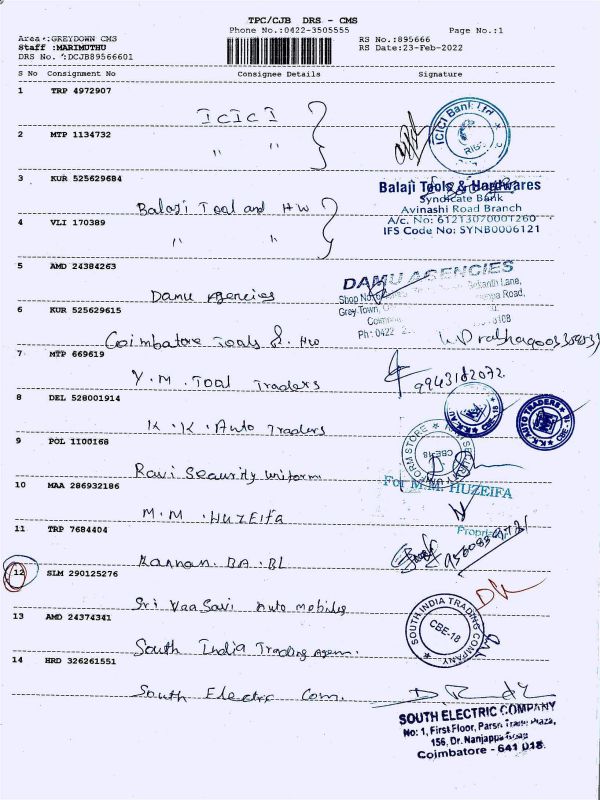 TPC/CJB DRS - CMS
Phone No.:0422-3505555
Page No.:1
Area :GREYDOWN CMS
RS No.:895666
Staff :MARIMUTHU
RS Date:23-Feb-2022
DRS No. :DCJB89566601
S No Consignment No Consignee Details Signature
1 TRP 4972907
ICICI
ICICI Bank Ltd
2 MTP 1134732
" "
3 KUR 525629684
Balaji Tools & Hardwares
Syndicate Bank
Balaji Tool and HW
Avinashi Road Branch
A/c. No: 61213070001260
4 VLI 170389
IFS Code No: SYNB0006121
" "
5 AMD 24384263
DAMU AGENCIES
Damu Agencies
Shop No
Lane,
Grey Town,
Road,
6 KUR 525629615
Ph: 0422
Coimbatore Tools & HW
7 MTP 669619
Y.M. Tool Traders
9943182072
8 DEL 528001914
K.K. Auto Traders
K.K. AUTO TRADERS
CBE-18
9 POL 1100168
FORM STORE
CBE-18
Ravi Security Uniform
For M.M. HUZEIFA
10 MAA 286932186
M.M. HUZEIFA
Proprietor
11 TRP 7684404
Kannan. BA. BL
12 SLM 290125276
Sri Vaasavi Auto mobiles
SOUTH INDIA TRADING COMPANY
CBE-18
13 AMD 24374341
South India Trading Agem.
14 HRD 326261551
South Electric Com.
SOUTH ELECTRIC COMPANY
No: 1, First Floor, Parsn Trade Plaza,
156, Dr. Nanjappa Road
Coimbatore - 641 018.